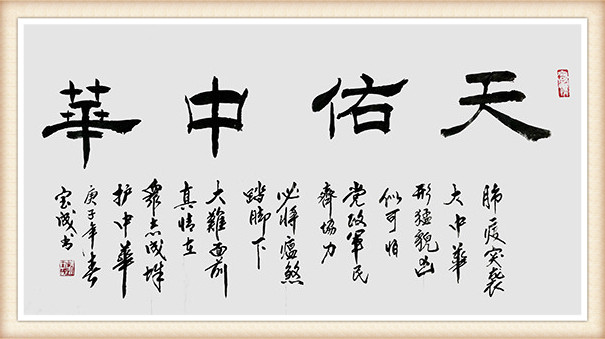 天佑中華
肺疫突袭
大中華
形猛貌凶
似可怕
党政軍民
齊協力
必将瘟煞
踏脚下
大難面前
真情在
眾志成城
护中華
庚子年春
宝成书